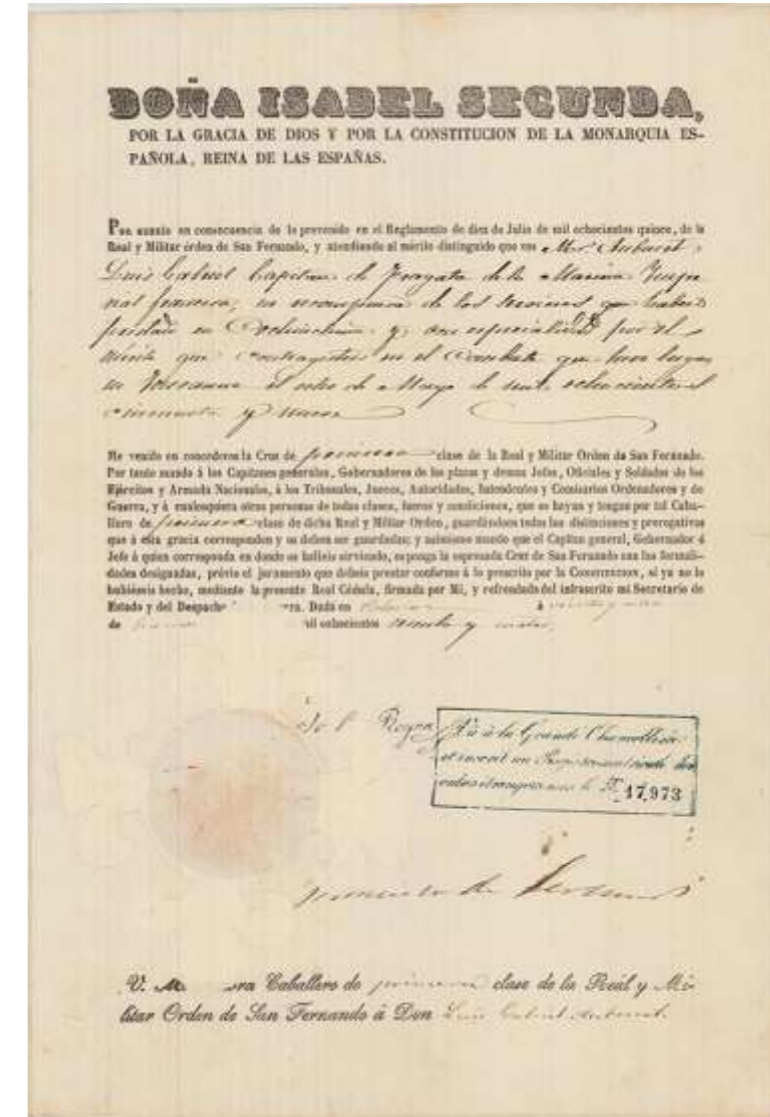 DOÑA ISABEL SEGUNDA,
POR LA GRACIA DE DIOS Y POR LA CONSTITUCION DE LA MONARQUIA ES-
PAÑOLA, REINA DE LAS ESPAÑAS.
Por cuanto en consecuencia de lo prevenido en el Reglamento de diez de Julio de mil ochocientos quince, de la
Real y Militar órden de San Fernando, y atendiendo al mérito distinguido que vos Mr. Aubaret
Luis Gabriel Capitan de Fragata de la Marina Impe
rial francesa, en recompensa de los servicios que habeis
prestado en Cochinchina y con especialidad por el
mérito que contragisteis en el Combate que tuvo lugar
en el ocho de Mayo de mil ochocientos
cincuenta y nueve
He venido en concederos la Cruz de primera clase de la Real y Militar Orden de San Fernando.
Por tanto mando á los Capitanes generales, Gobernadores de las plazas y demas Jefes, Oficiales y Soldados de los
Ejércitos y Armada Nacionales, á los Tribunales, Jueces, Autoridades, Intendentes y Comisarios Ordenadores y de
Guerra, y á cualesquiera otras personas de todas clases, fueros y condiciones, que os hayan y tengan por tal Caba-
llero de primera clase de dicha Real y Militar Orden, guardándoos todas las distinciones y prerogativas
que á esta gracia corresponden y os deben ser guardadas; y asimismo mando que el Capitan general, Gobernador ó
Jefe á quien corresponda en donde os halleis sirviendo, os ponga la espresada Cruz de San Fernando con las formali-
dades designadas, prévio el juramento que debeis prestar conforme á lo prescrito por la Constitucion, si ya no lo
hubiéseis hecho, mediante la presente Real Cédula, firmada por Mí, y refrendada del infrascrito mi Secretario de
Estado y del Despacho rra. Dada en Palacio á
de il ochocientos sesenta y
Yo la Reyna
Vu à la Grande Chancellerie
et inscrit
ordres étrangers sous le N° 17,973
V. M. ra Caballero de primera clase de la Real y Mi-
litar Orden de San Fernando á Don Luis Gabriel Aubaret.